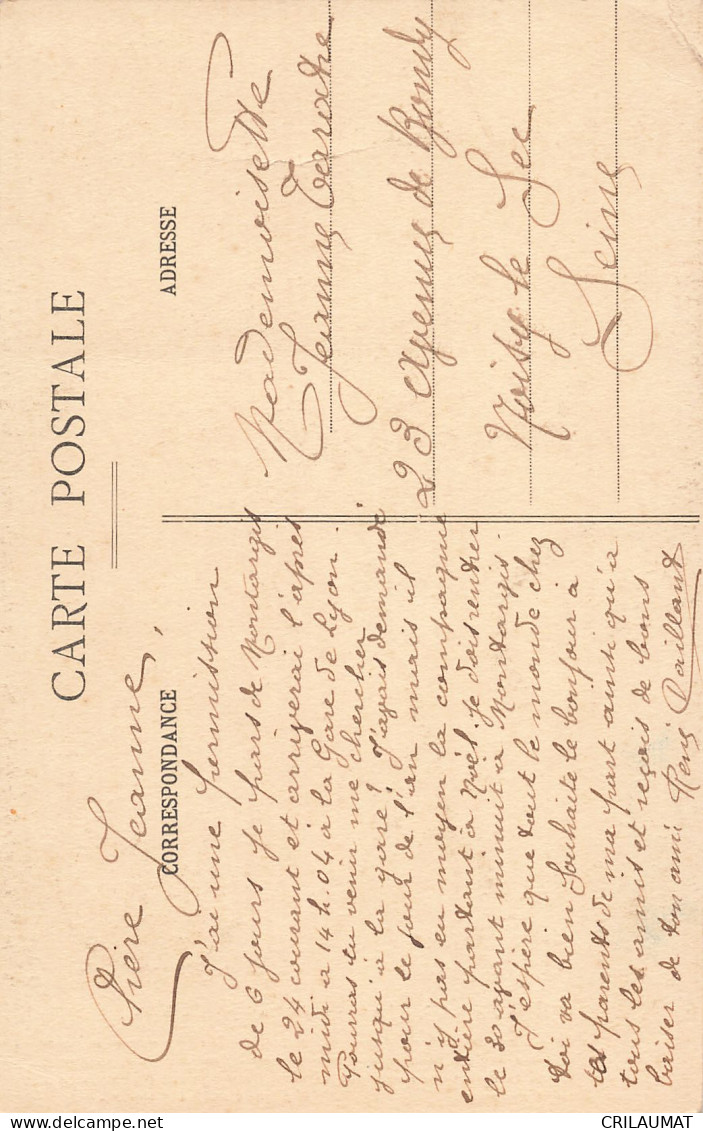 CARTE POSTALE
CORRESPONDANCE
Chère Jeanne,
J'ai une permission
de 6 jours je pars de Montargis
le 24 courant et arriverai l'après
midi à 14 h. 04 à la Gare de Lyon
Pourras tu venir me chercher
jusqu'à la gare? J'avais demandé
pour le jour de l'an mais il
n'y pas eu moyen la compagnie
entière partant à Noël. Je dois rentrer
le 30 avant minuit à Montargis.
J'espère que tout le monde chez
toi va bien Souhaite le bonjour à
tes parents de ma part ainsi qu'à
tous les amis et reçois de bons
baiser de ton ami René Vaillant
ADRESSE
Mademoiselle
Jeanne
23 Avenue de Bondy
Noisy le Sec
Seine
delcampe.net
CRILAUMAT